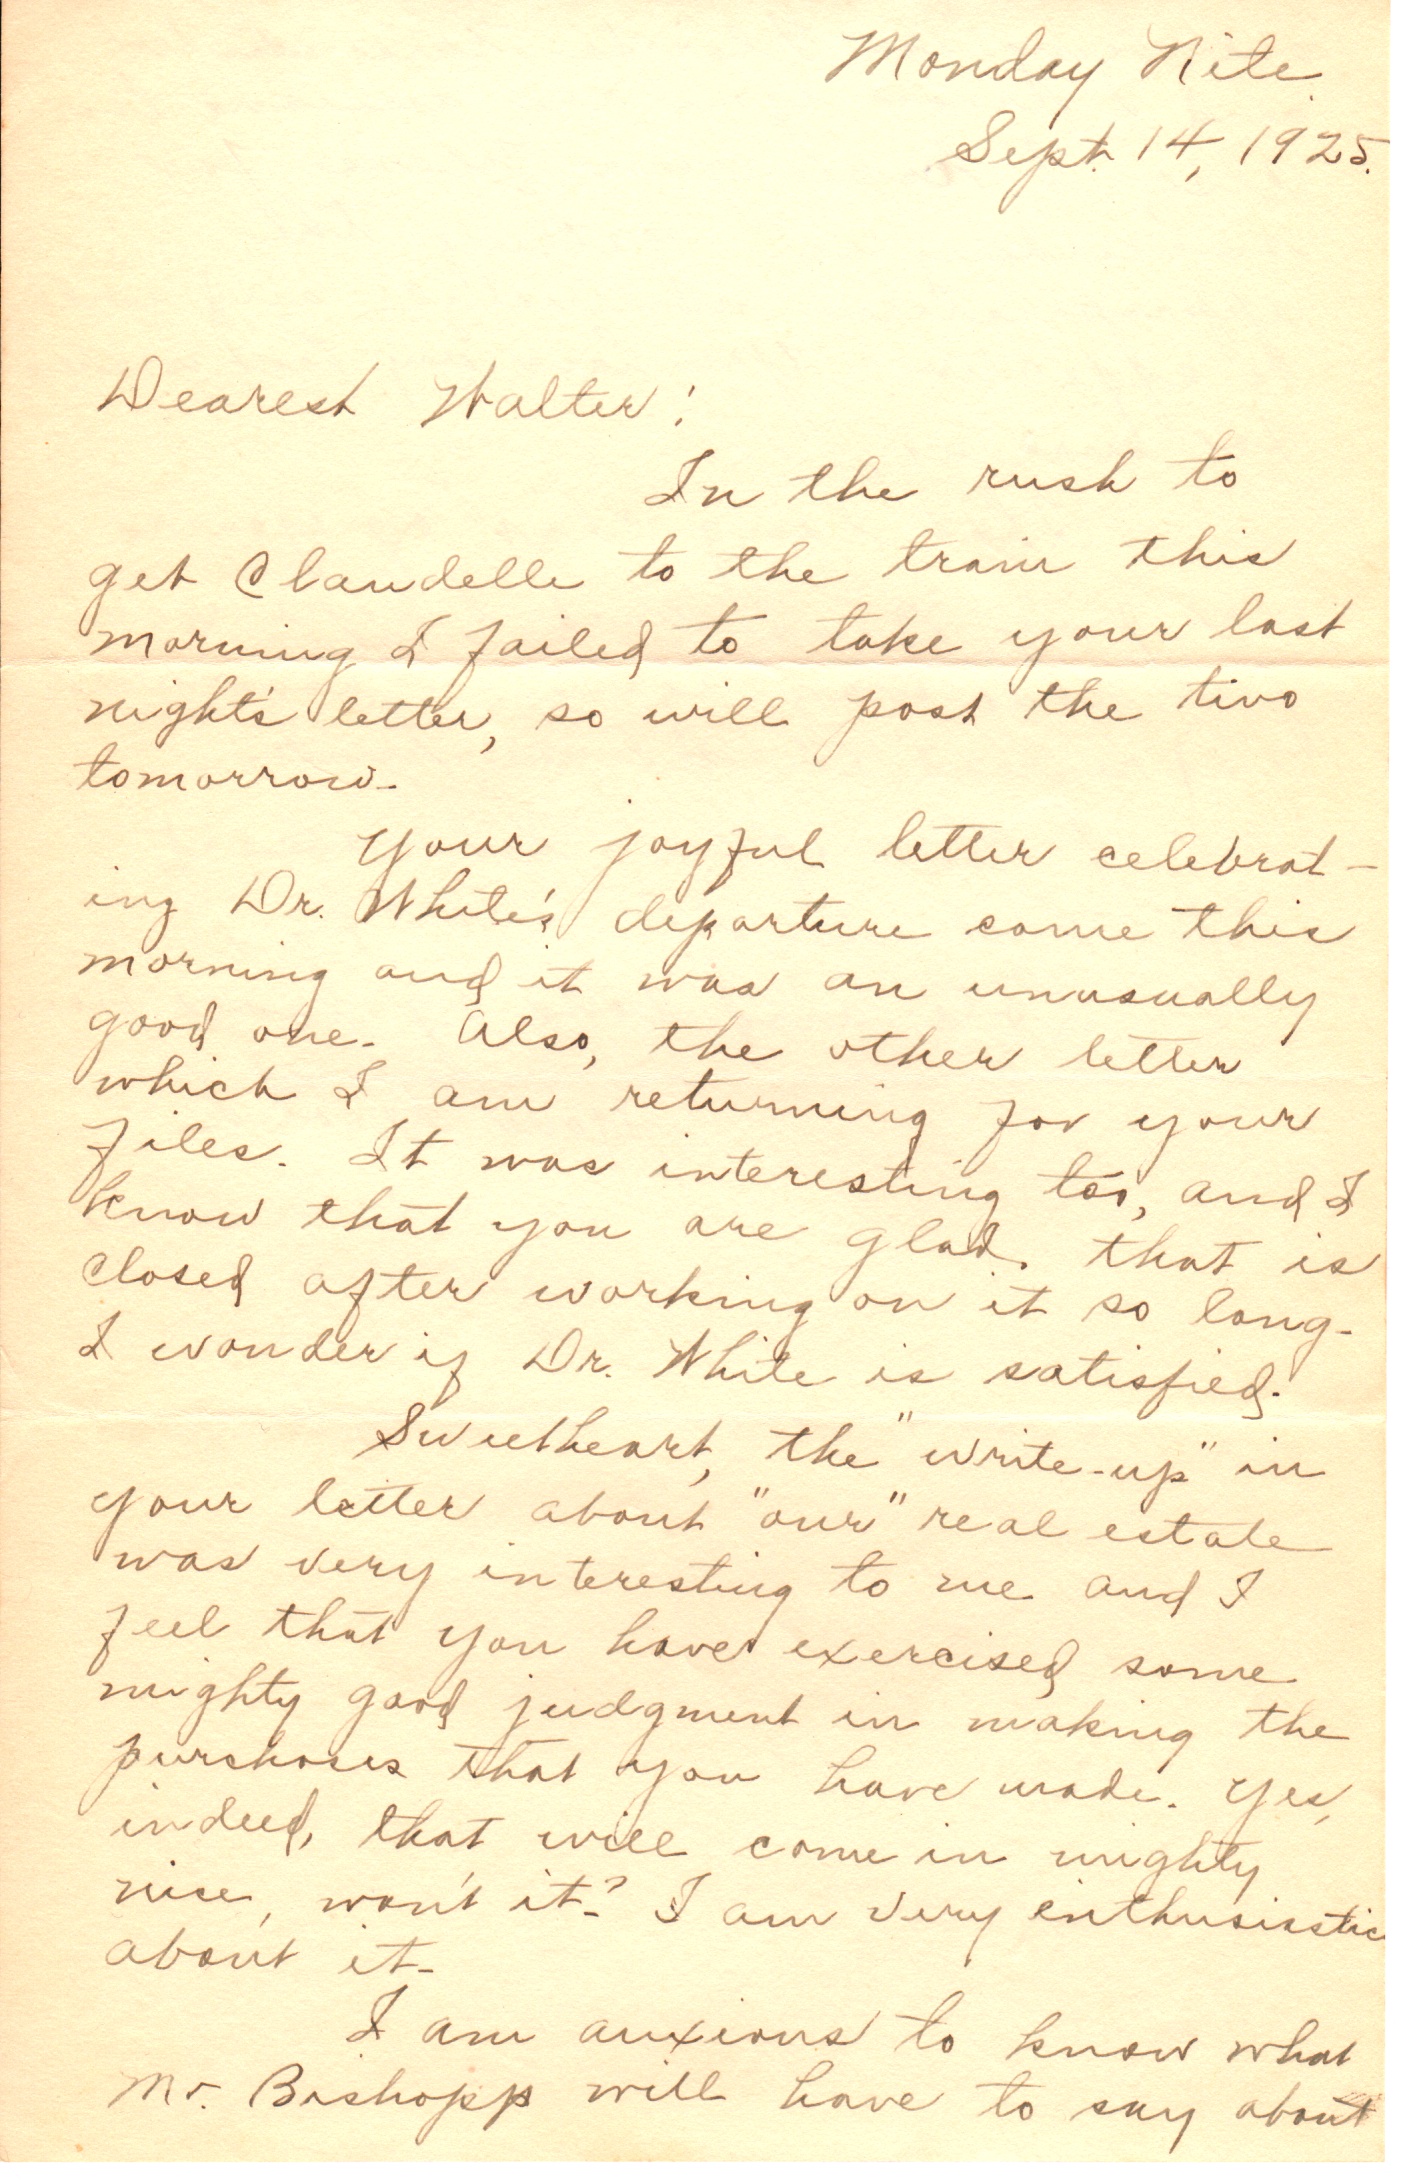 Monday Nite.
Sept. 14, 1925.
Dearest Walter:
In the rush to
get Claudelle to the train this
morning I failed to take your last
night's letter, so will post the two
tomorrow.
Your joyful letter celebrat-
ing Dr. White's departure came this
morning and it was an unusually
good one. Also, the other letter
which I am returning for your
files. It was interesting too, and I
know that you are glad that is
closed after working on it so long.
I wonder if Dr. White is satisfied.
Sweetheart, the "write-up" in
your letter about "our" real estate
was very interesting to me and I
feel that you have exercised some
mighty good judgment in making the
purchases that you have made. Yes,
indeed, that will come in mighty
nice, won't it? I am very enthusiastic
about it.
I am anxious to know what
Mr. Bishopp will have to say about